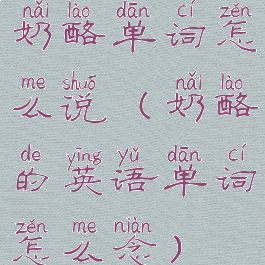 nǎi lào dān cí zěn
奶酪单词怎
me shuō nǎi lào
么说（奶酪
de yīng yǔ dān cí
的英语单词
zěn me niàn
怎么念）